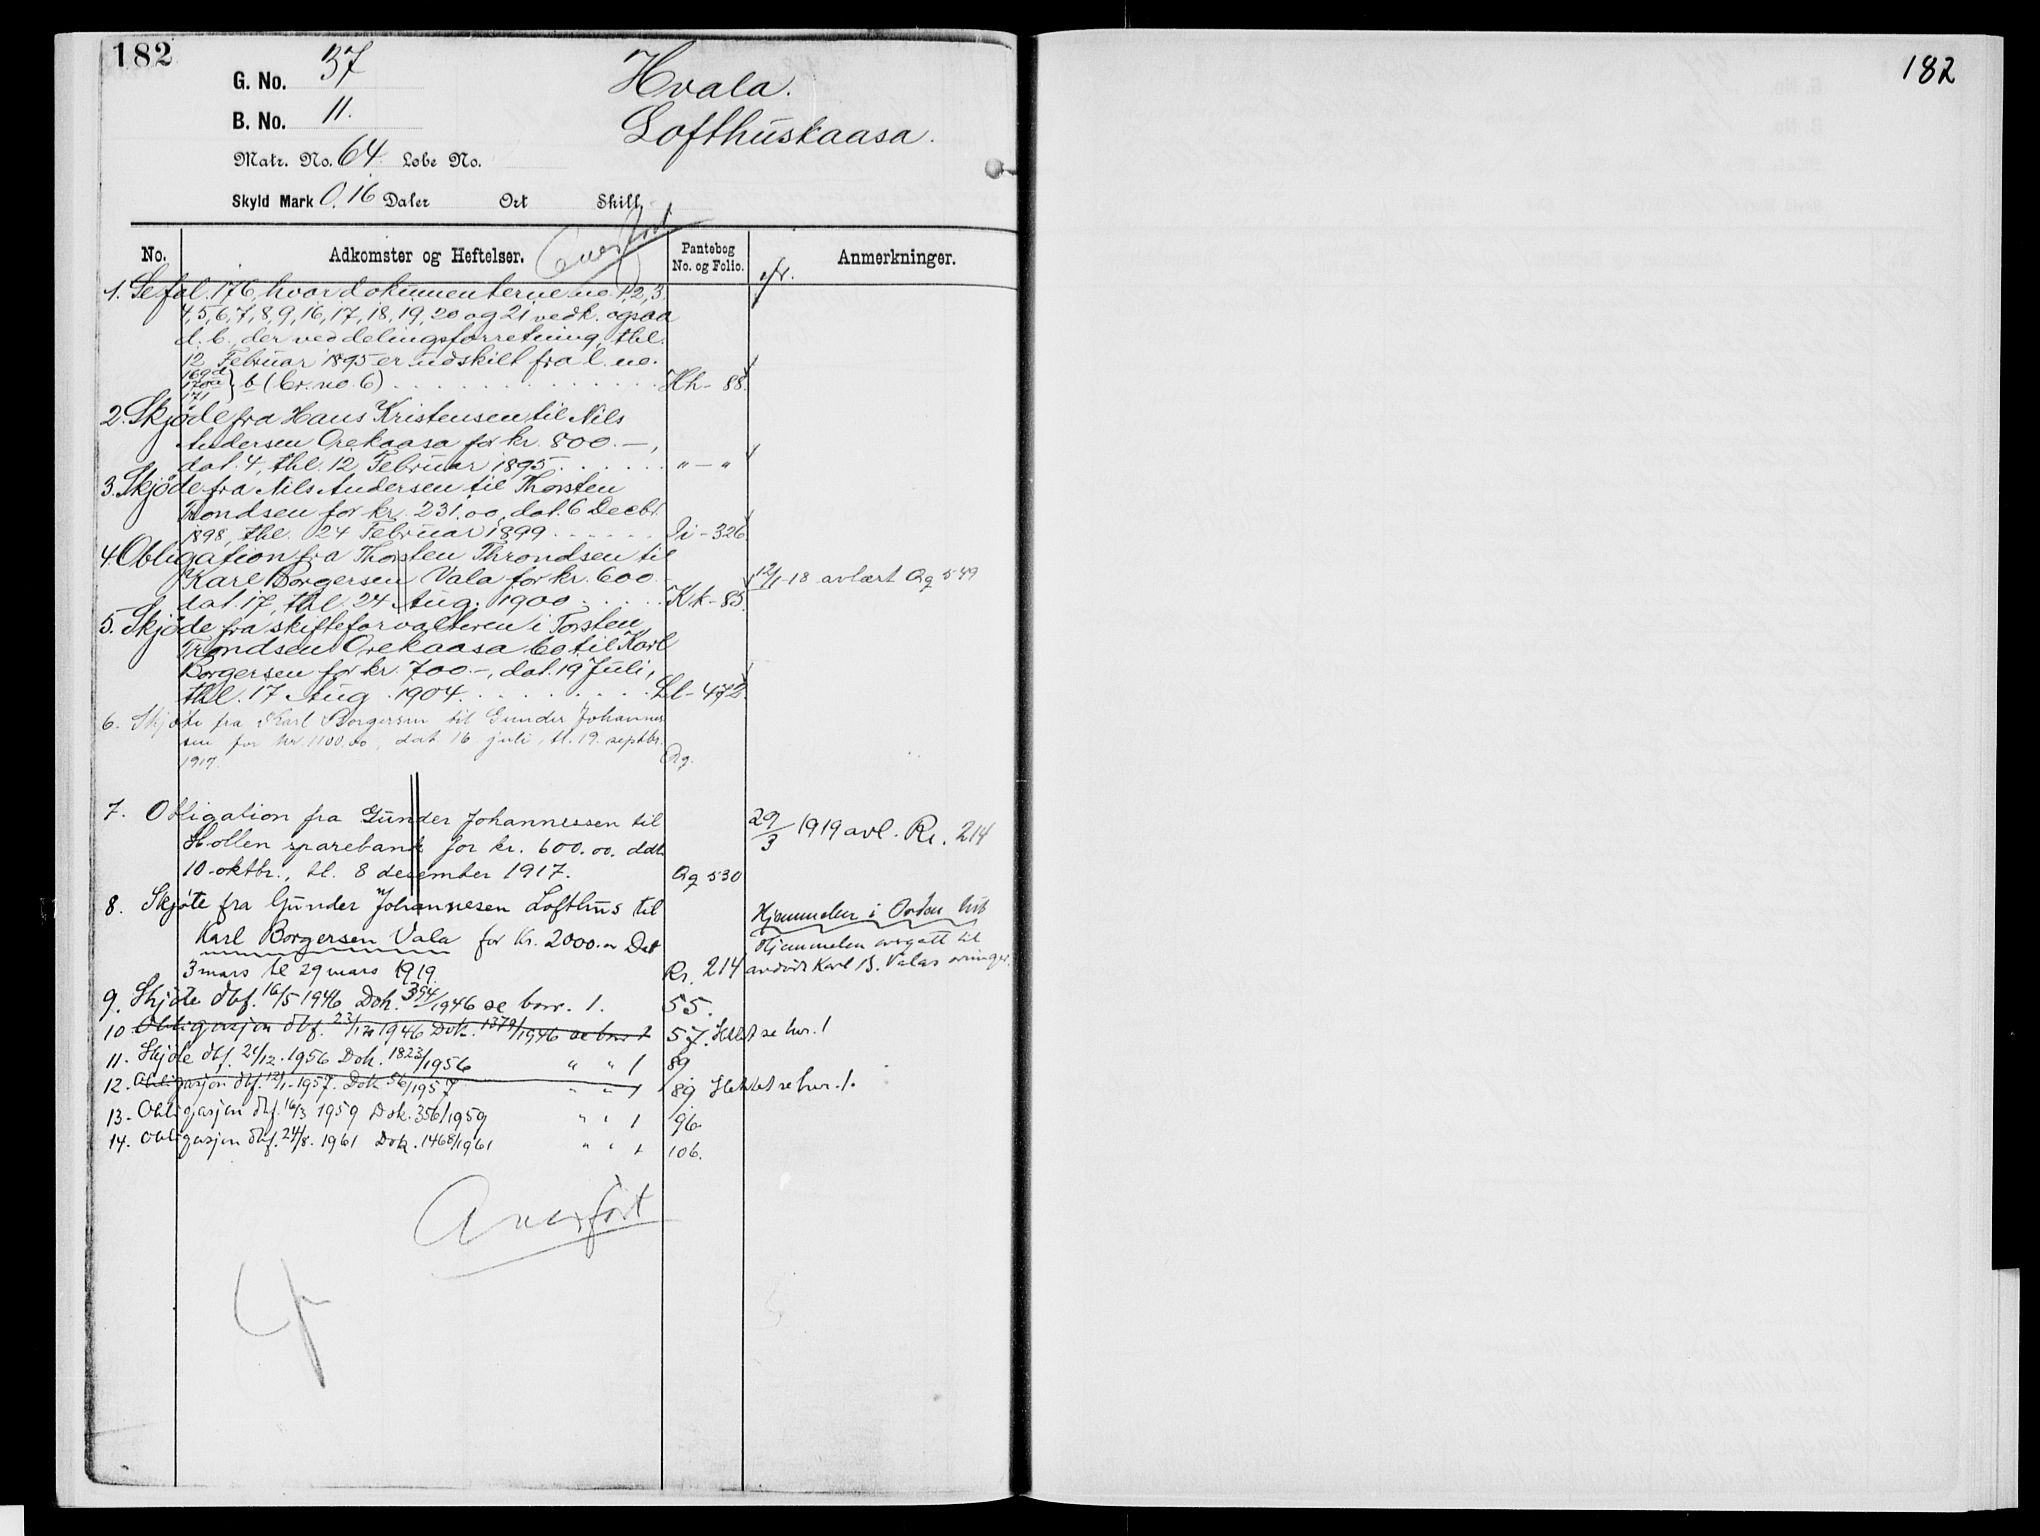 182
G. No. 37
Hvala.
B. No. 11.
Lofthuskaasa.
Matr. No. 64. Løbe No.
Skyld Mark 0,16 Daler Ort Skill.
Overført
No. Adkomster og Heftelser. Pantebog No. og Folio. Anmerkninger.
1. Se fol. 176, hvor dokumenterne no. 1, 2, 3,
4, 5, 6, 7, 8, 9, 16, 17, 18, 19, 20 og 21 vedk. ogsaa
d. b., der ved delingsforretning, thl.
12 Februar 1895 er udskilt fra l. no.
169d 170a 171 } b (br. no. 6) Hh - 88.
2. Skjøde fra Hans Kristensen til Nils
Andersen Orekaasa for kr. 800.—,
dat. 4, thl. 12 Februar 1895 „ — „
3. Skjøde fra Nils Andersen til Thorsten
Trondsen for kr. 231.00, dat. 6 Decbr.
1898, thl. 24 Februar 1899 Ii - 326
4. Obligation fra Thorsten Throndsen til
Karl Borgersen Vala for kr. 600.- 12/1-18 avlæst Qq 549
dat. 17, thl. 24 Aug. 1900 Kk - 85.
5. Skjøde fra skifteforvalteren i Torsten
Trondsen Orekaasa bo til Karl
Borgersen for kr. 700.-, dat. 19 Juli,
thl. 17 Aug. 1904. Ll - 472.
6. Skjøte fra Karl Borgersen til Gunder Johannes
sen for kr. 1100.00, dat 16 juli, tl. 19. septbr.
1917. Qq.
7. Obligation fra Gunder Johannessen til
Hollen sparebank for kr. 600.00. ddt. 29/3 1919 avl. Rr. 214
10-oktbr., tl. 8 desember 1917. Qq 530
8. Skjøte fra Gunder Johannesen Lofthus til Hjemmelen i Orden
Karl Borgersen Vala for Kr. 2000.00 Dat Hjemmelen overgått til
3 mars tl 29 mars 1919. Rr. 214 avdøde Karl B. Valas arvinger.
9. Skjøte dbf. 16/5 1946 Dok. 394/1946 se bnr. 1. 55.
10 Obligasjon dbf. 23/12 1946 Dok. 1379/1946 se bnr 1 57. Slettet se bnr. 1
11. Skjøte dbf. 24/12. 1956 Dok. 1823/1956 " " 1 89
12. Obligasjon dbf. 12/1-1957. Dok 56/1957 " " 1 89 Slettet se bnr. 1.
13. Obligasjon dbf. 16/3 1959 Dok. 356/1959 " " 1 96.
14. Obligasjon dbf. 24/8. 1961 Dok. 1468/1961 " " 1 106.
Overført
182